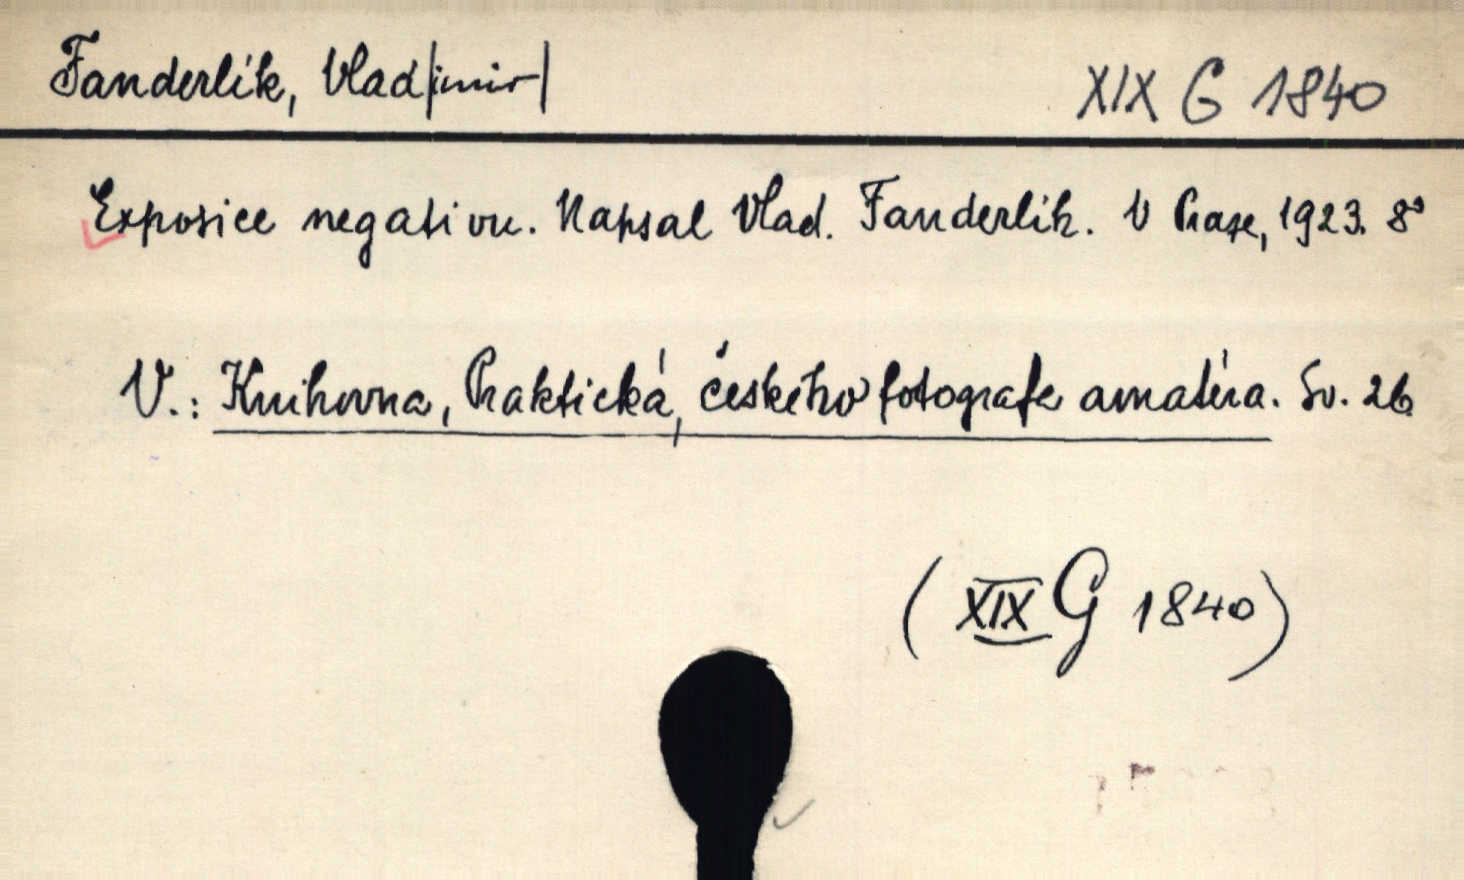 Fanderlík, Vlad/imír/ XIX G 1840
Exposice negativu. Napsal Vlad. Fanderlík. V Praze, 1923. 8°
V.: Knihovna, Praktická, českého fotografa amatéra. Sv. 26
( XIX G 1840 )